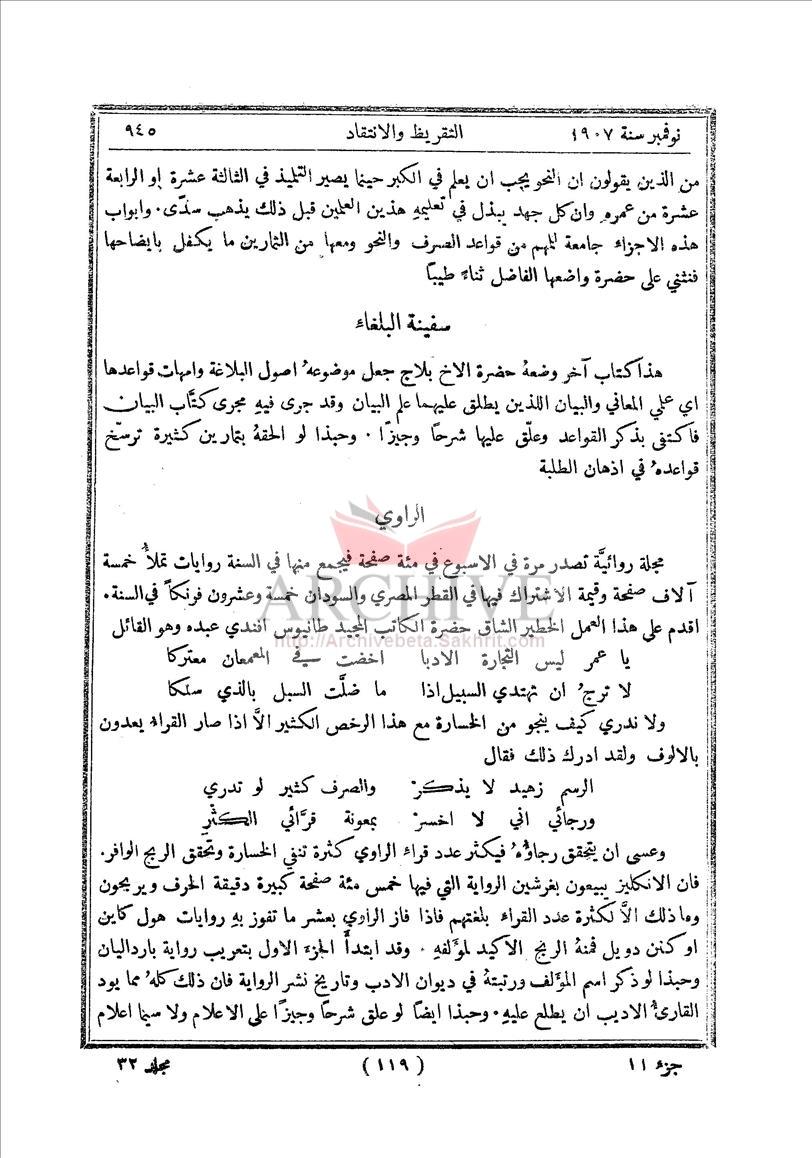 نوفمبر سنة ١٩٠٧ التقريظ والانتقاد ٩٤٥
من الذين يقولون ان النحو يجب ان يعلم في الكبر حينما يصير التلميذ في الثالثة عشرة او الرابعة
عشرة من عمرهِ وان كل جهد يبذل في تعليمهِ هذين العلمين قبل ذلك يذهب سدًى. وابواب
هذه الاجزاء جامعة للمهم من قواعد الصرف والنحو ومعها من التمارين ما يكفل بايضاحها
فنثني على حضرة واضعها الفاضل ثناءً طيبًا
سفينة البلغاء
هذا كتاب آخر وضعهُ حضرة الاخ بلاج جعل موضوعهُ اصول البلاغة وامهات قواعدها
اي علمي المعاني والبيان اللذين يطلق عليهما علم البيان وقد جرى فيهِ مجرى كتَّاب البيان
فاكتفى بذكر القواعد وعلَّق عليها شرحًا وجيزًا. وحبذا لو الحقهُ بتمارين كثيرة ترسّخ
قواعدهُ في اذهان الطلبة
الراوي
مجلة روائيَّة تصدر مرة في الاسبوع في مئة صفحة فيجمع منها في السنة روايات تملأُ خمسة
آلاف صفحة وقيمة الاشتراك فيها في القطر المصري والسودان خمسة وعشرون فرنكاً في السنة.
ARCHIVE
اقدم على هذا العمل الخطير الشاق حضرة الكاتب المجيد طانيوس افندي عبده وهو القائل
http://Archivebeta.Sakhrit.com
يا عمر ليس التجارة الادبا اخضت في المعمعان معتركا
لا ترجُ ان تهتدي السبيل اذا ما ضلَّت السبل بالذي سلكا
ولا ندري كيف ينجو من الخسارة مع هذا الرخص الكثير الَّا اذا صار القراء يعدون
بالالوف ولقد ادرك ذلك فقال
الرسم زهيد لا يذكرْ والصرف كثير لو تدري
ورجائي اني لا اخسرْ بمعونة قرَّائي الكثْرِ
وعسى ان يتحقق رجاؤُهُ فيكثر عدد قراء الراوي كثرة تنفي الخسارة وتحقق الربح الوافر.
فان الانكليز يبيعون بغرشين الرواية التي فيها خمس مئة صفحة كبيرة دقيقة الحرف ويربحون
وما ذلك الَّا لكثرة عدد القراء بلغتهم فاذا فاز الراوي بعشر ما تفوز بهِ روايات هول كاين
او كنن دويل فمنهُ الربح الاكيد لمؤَلفهِ. وقد ابتدأَ الجزء الاول بتعريب رواية بارداليان
وحبذا لو ذكر اسم المؤَلف ورتبتهُ في ديوان الادب وتاريخ نشر الرواية فان ذلك كلهُ مما يود
القارئُ الاديب ان يطلع عليهِ. وحبذا ايضًا لو علق شرحًا وجيزًا على الاعلام ولا سيما اعلام
جزء ١١ (١١٩) مجلد ٣٢